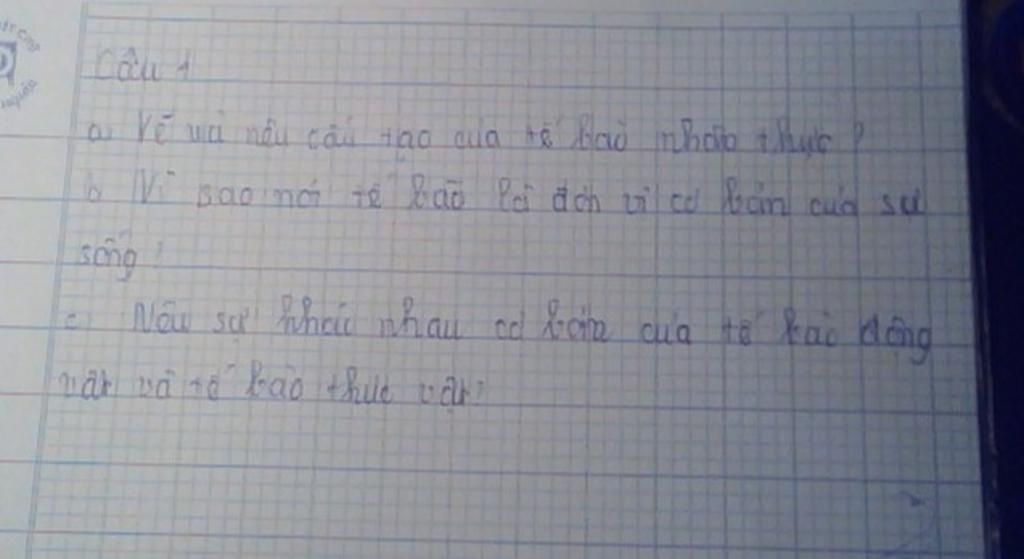 Câu 1
a. Vẽ và nêu cấu tạo của tế bào nhân thực?
b Vì sao nói tế bào là đơn vị cơ bản của sự
sống?
c. Nêu sự khác nhau cơ bản của tế bào động
vật và tế bào thực vật?